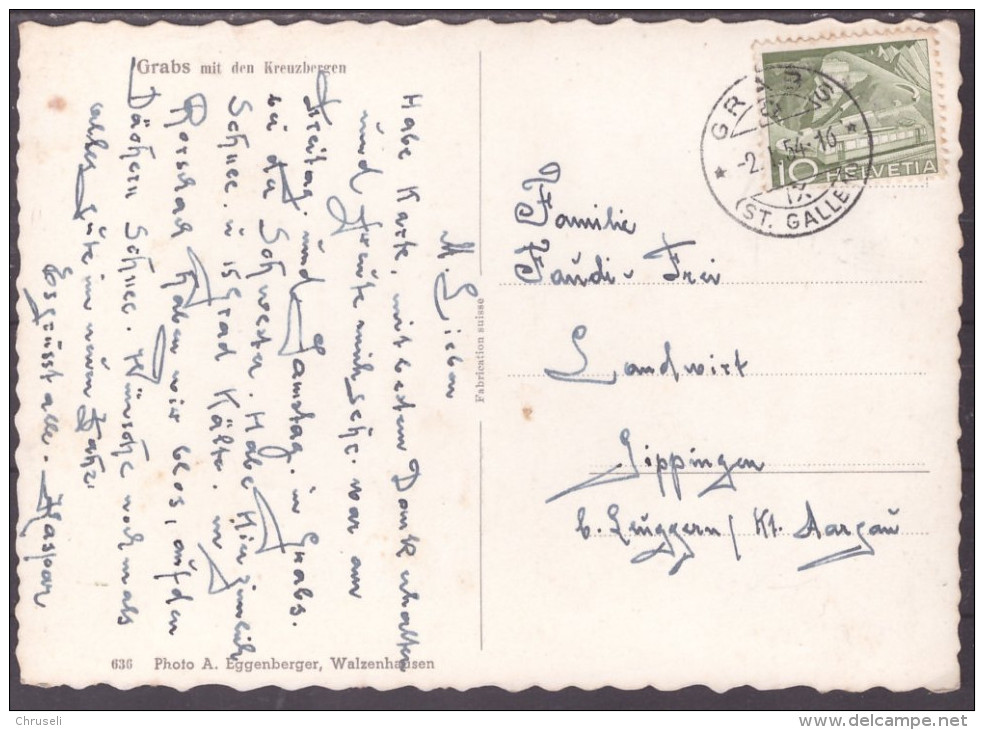 Grabs mit den Kreuzbergen
M. Lieben
Habe Karte, mit bestem Dank erhalten
und freute mich sehr. war am
Freitag und Samstag. in Grabs.
bei der Schwester. Habe Hier ziemlich
Schnee. u 15 Grad Kälte. in
Rorschach haben wir blos, auf den
Dächern Schnee. Wünsche nochmals
alles gute im neuen Jahr
Es grüsst alle. Kaspar
636 Photo A. Eggenberger, Walzenhausen
Fabrication suisse
GRABS
-2. 54-16
(ST. GALLEN)
10 HELVETIA
Familie
Frei
Landwirt
Gippingen
b. Leuggern / Kt. Aargau
Chruseli
www.delcampe.net